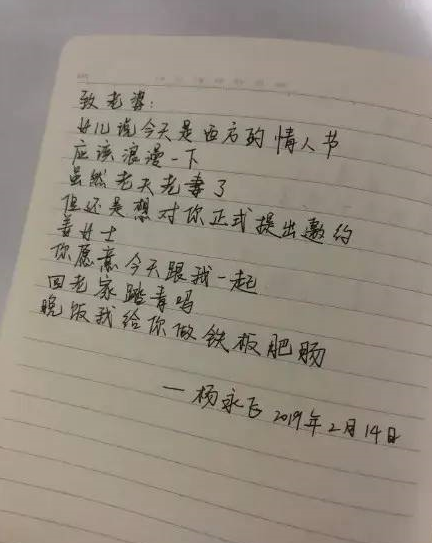 致老婆：
女儿说今天是西方的情人节
应该浪漫一下
虽然老夫老妻了
但还是想对你正式提出邀约
姜女士
你愿意今天跟我一起
回老家踏青吗
晚饭我给你做铁板肥肠
—杨永飞 2019年2月14日